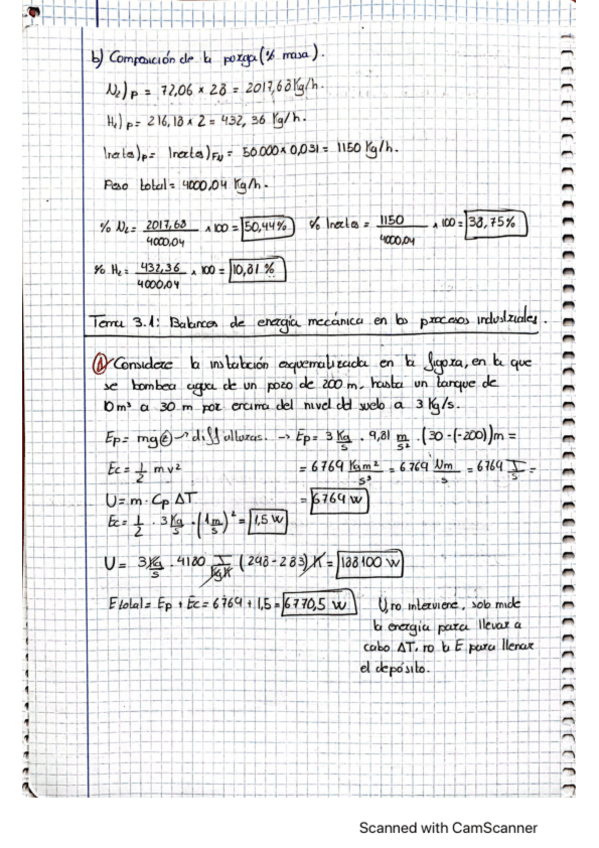 b) Composición de la purga (% masa).
N₂)p = 72,06 × 28 = 2017,68 Kg/h.
H₂)p = 216,18 × 2 = 432,36 Kg/h.
Inertes)p = Inertes)FN = 50.000 × 0,031 = 1150 Kg/h.
Peso total = 4000,04 Kg/h.
% N₂ = 2017,68 / 4000,04 × 100 = 50,44% % Inertes = 1150 / 4000,04 × 100 = 38,75%
% H₂ = 432,36 / 4000,04 × 100 = 10,81 %
Tema 3.1: Balances de energía mecánica en los procesos industriales.
1) Considere la instalación esquematizada en la figura, en la que
se bombea agua de un pozo de 200 m, hasta un tanque de
10 m³ a 30 m por encima del nivel del suelo a 3 Kg/s.
Ep = mgz → diff alturas. → Ep = 3 Kg/s · 9,81 m/s² · (30 - (-200)) m =
Ec = 1/2 m v² = 6769 Kg m²/s³ = 6769 Nm/s = 6769 J/s =
U = m · Cp ΔT = 6769 W
Ec = 1/2 · 3 Kg/s · (1 m/s)² = 1,5 W
U = 3 Kg/s · 4180 J/KgK (298 - 283) K = 188100 W
E total = Ep + Ec = 6769 + 1,5 = 6770,5 W U, no interviene, solo mide
la energía para llevar a
cabo ΔT, no la E para llenar
el depósito.
Scanned with CamScanner